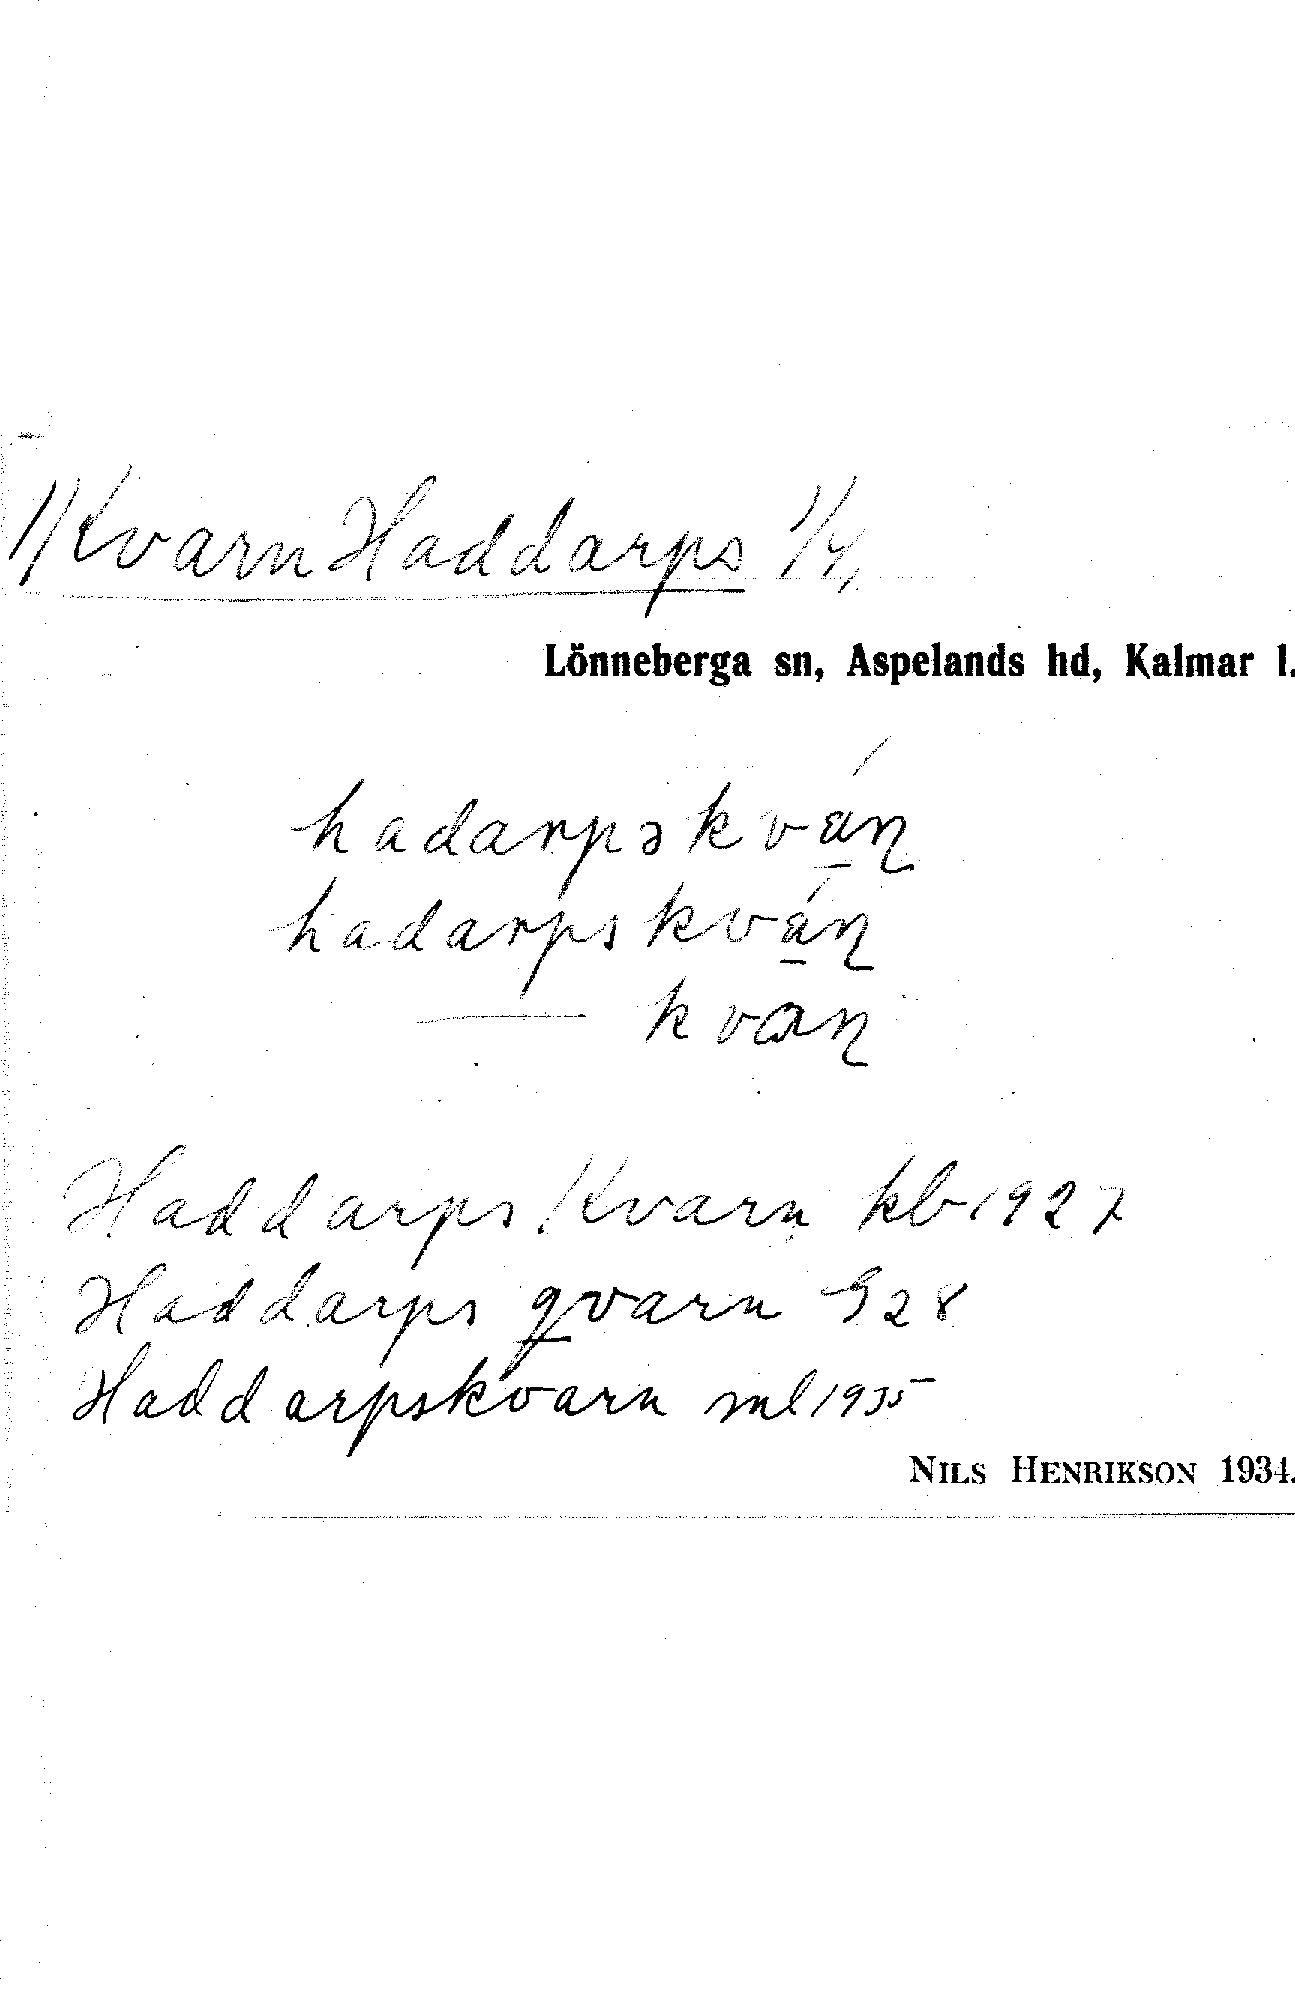 1/Kvarn Haddarps 1/4,
Lönneberga sn, Aspelands hd, Kalmar l.
hadarpskván
hadarpskván
—— kvan
Haddarps Kvarn kb 1927
Haddarps qvarn 928
Haddarpskvarn ml 1935
NILS HENRIKSON 1934.